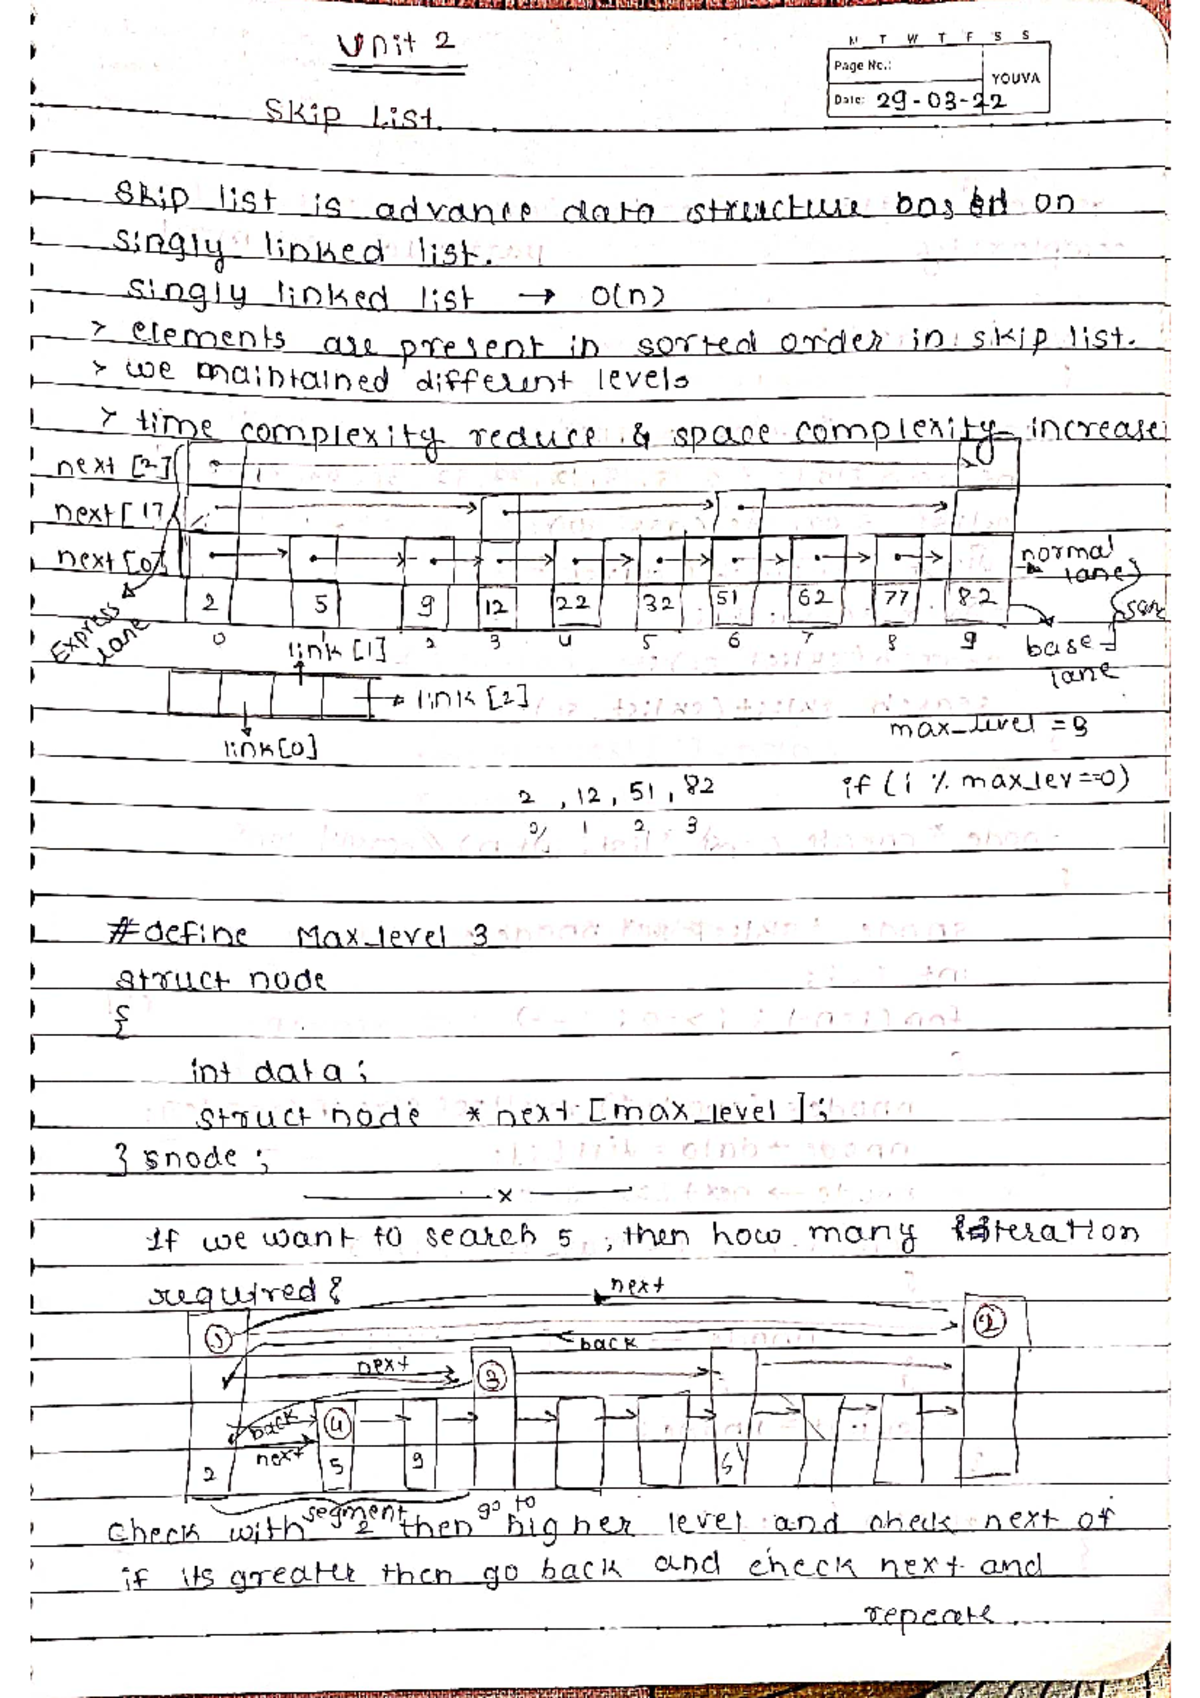 Unit 2
M T W T F S S
Page No.:
YOUVA
Date: 29-03-22
Skip List.
Skip list is advance data structure based on
singly linked list.
singly linked list → O(n)
> elements are present in sorted order in skip list.
> we maintained different levels
> time complexity reduce & space complexity increase
next [2]
next [1]
next [0]
normal lane
2 5 9 12 22 32 51 62 77 82
same
Express lane
0 2 3 4 5 6 7 8 9
base lane
link [1]
link [2]
link[0]
max_level = 3
2 , 12 , 51 , 82
if ( i % max_lev==0)
0 1 2 3
#define Max_level 3
struct node
{
int data ;
struct node * next [max_level] ;
} snode ;
x
If we want to search 5 , then how many iteration
required ?
next
1 2
back
next 3
back 4
next
2 5 9 51
segment
go to
check with 2 then higher level and check next of
if its greater then go back and check next and
repeate.